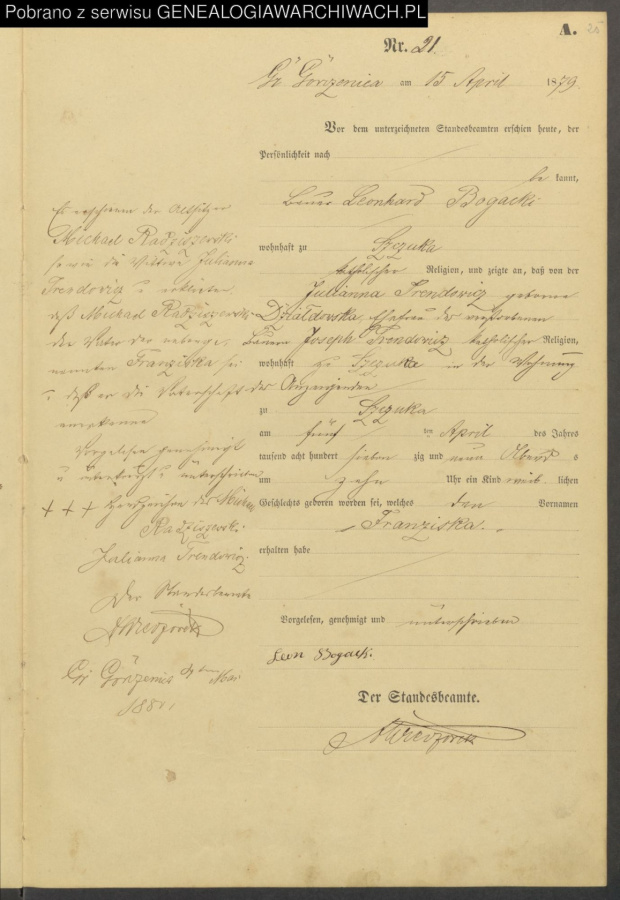 Pobrano z serwisu GENEALOGIAWARCHIWACH.PL
A. 25
Nr. 21.
Gr. Gorczenica am 15 April 1879.
Vor dem unterzeichneten Standesbeamten erschien heute, der
Persönlichkeit nach
be kannt,
Bauer Leonhard Bogacki
wohnhaft zu Szczuka
katholischer Religion, und zeigte an, daß von der
Julianna Trendowicz geborene
Dzialdowska, Ehefrau des verstorbenen
Bauern Joseph Trendowicz katholischer Religion,
wohnhaft zu Szczuka in der Wohnung
des Anzeigenden
zu Szczuka
am fünf ten April des Jahres
tausend acht hundert sieben zig und neun Abends
um zehn Uhr ein Kind weib lichen
Geschlechts geboren worden sei, welches den Vornamen
Franziska.
erhalten habe
Vorgelesen, genehmigt und unterschrieben
Leon Bogacki.
Der Standesbeamte.
Es erschienen der Altsitzer
Michael Radziszewski
sowie die Wittwe Julianna
Trendowicz u erklärten
daß Michael Radziszewski
der Vater der nebenge-
nannten Franziska sei
u daß er die Vaterschaft
anerkenne
Vorgelesen genehmigt
u unterschrieben
+ + + Handzeichen des
Radziszewski
Julianna Trendowicz.
Der Standesbeamte
Gr Gorczenica Mai
188